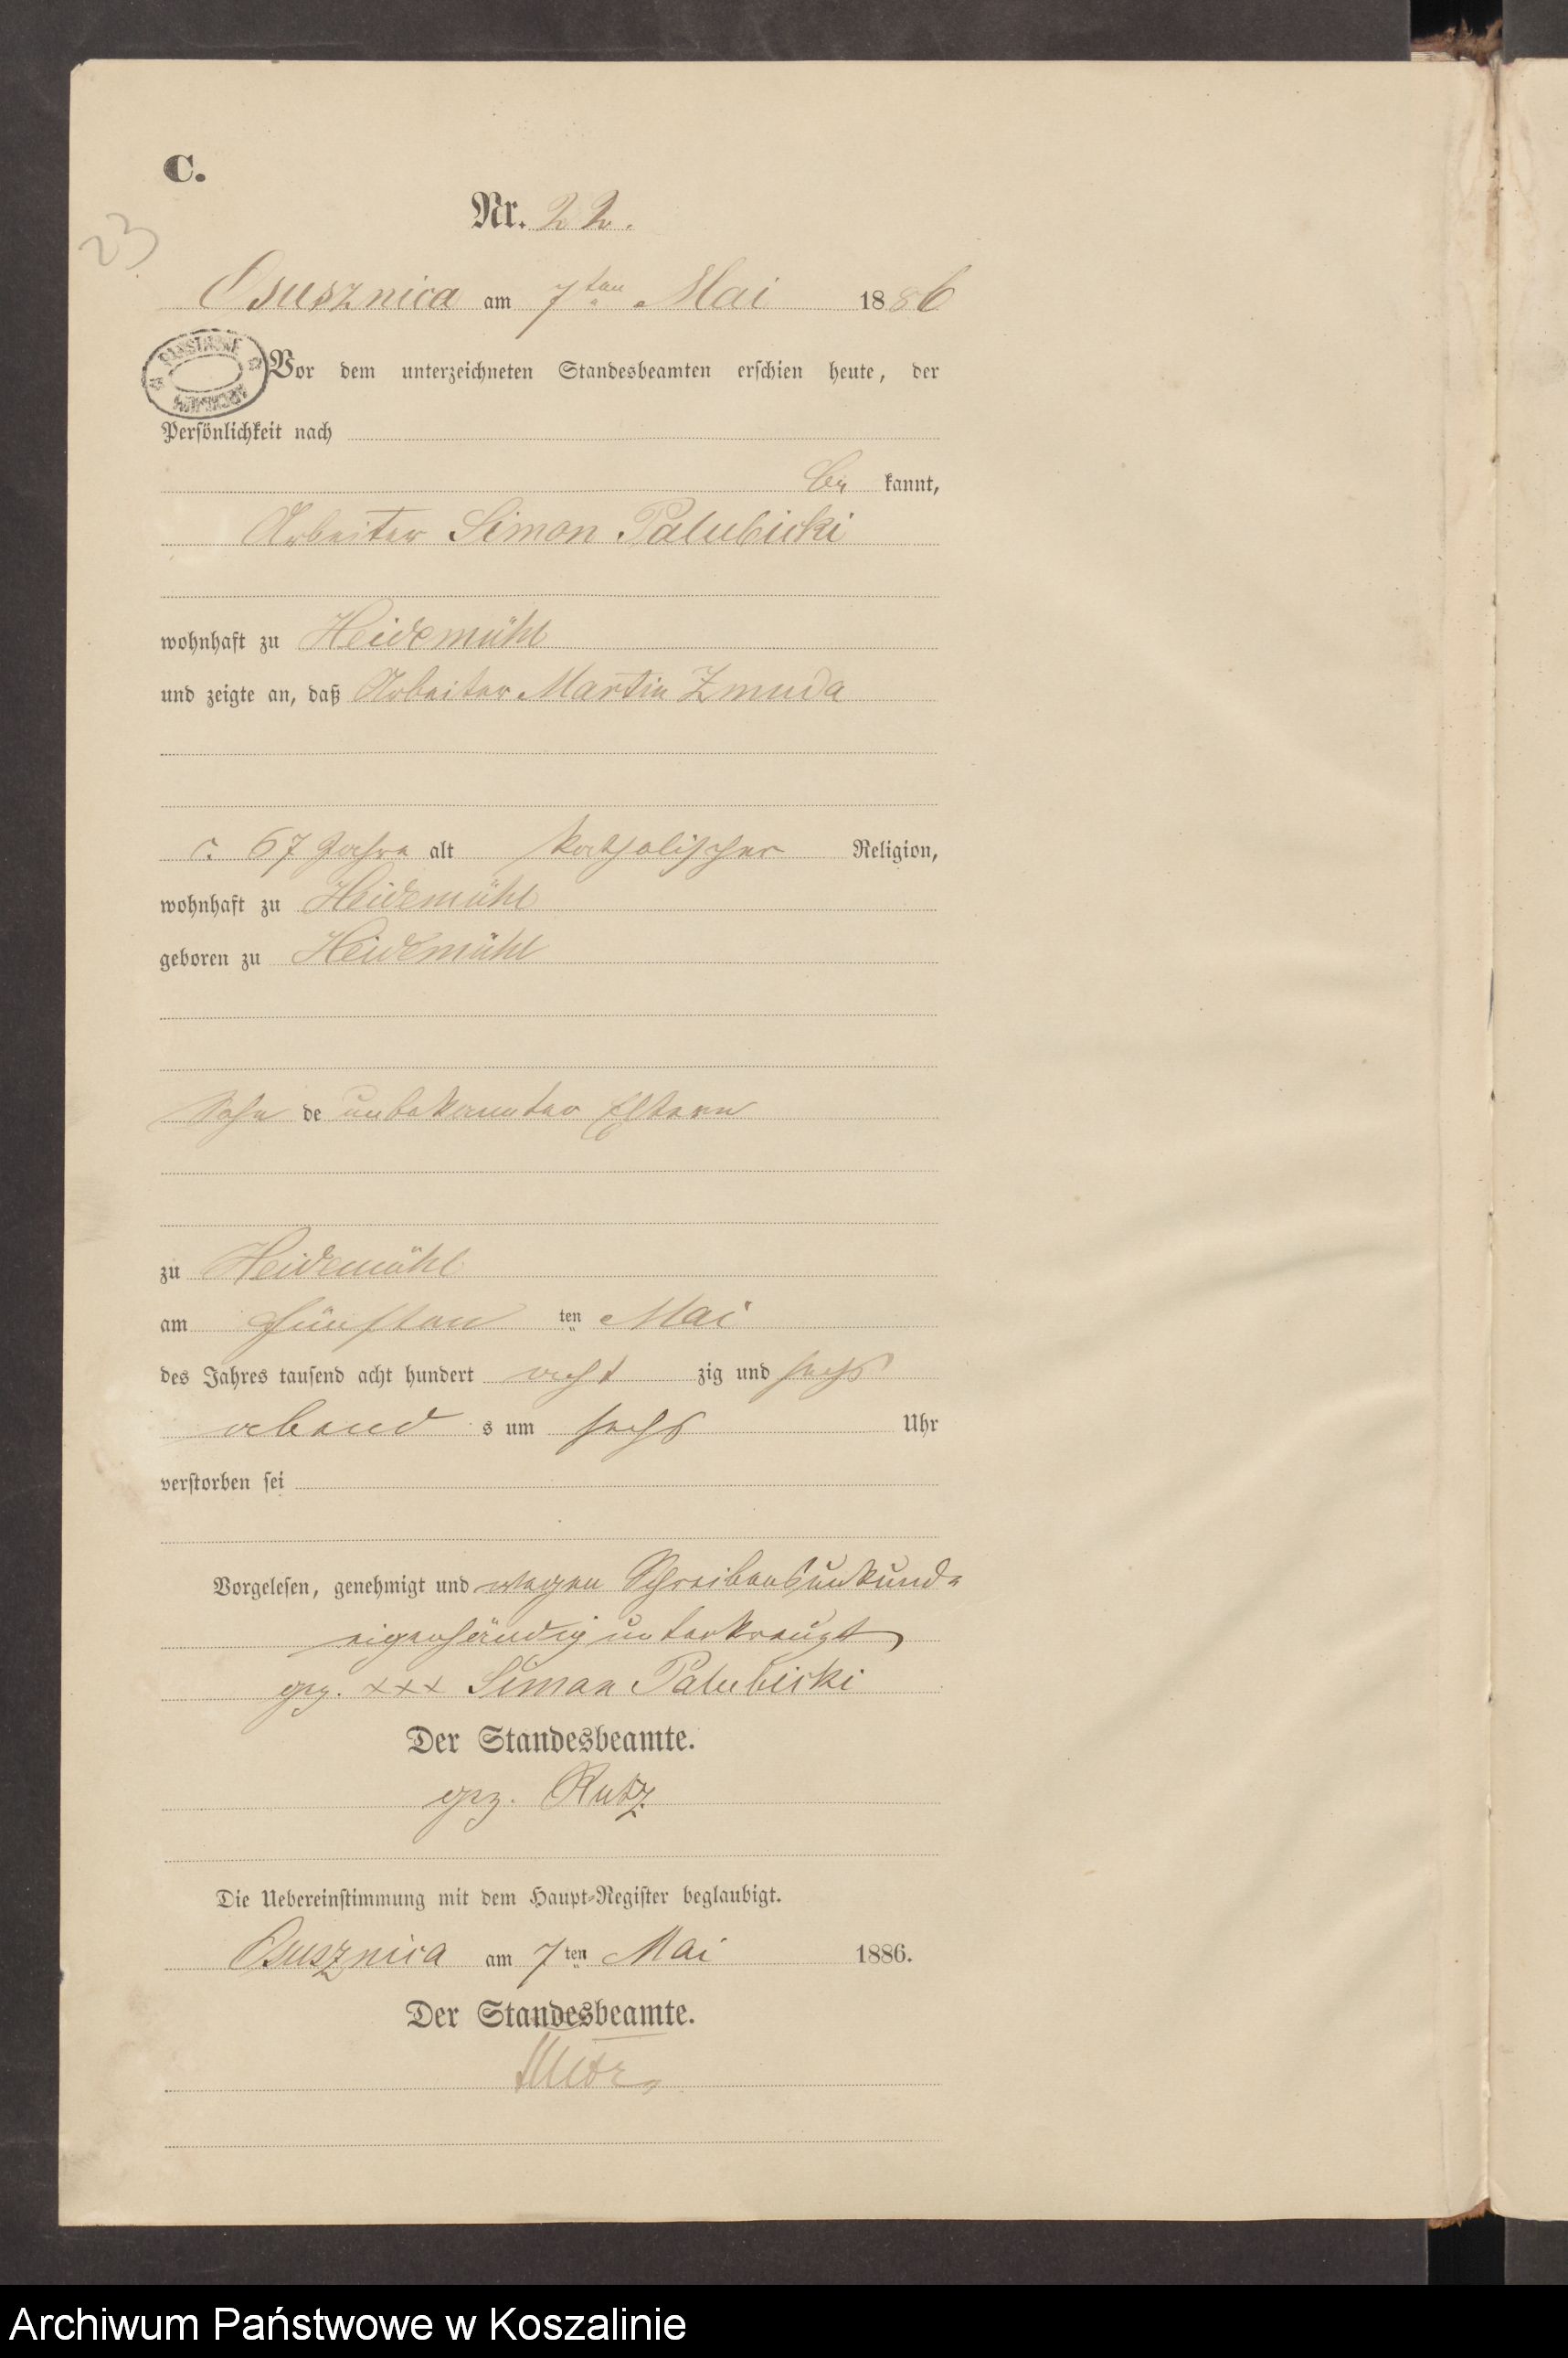 C.
Nr. 22.
23
Osusznica am 7ten Mai 1886
Vor dem unterzeichneten Standesbeamten erschien heute, der
Persönlichkeit nach
be kannt,
Arbeiter Simon Palubicki
wohnhaft zu Heidemühl
und zeigte an, daß Arbeiter Martin Zmuda
c. 67 Jahre alt katholischer Religion,
wohnhaft zu Heidemühl
geboren zu Heidemühl
Sohn de unbekannter Eltern
zu Heidemühl
am fünften ten Mai
des Jahres tausend acht hundert acht zig und sechs
abend s um sechs Uhr
verstorben sei
Vorgelesen, genehmigt und wegen Schreibensunkunde
eigenhändig unterkreuzt
gez. xxx Simon Palubicki
Der Standesbeamte.
gez. Rutz
Die Uebereinstimmung mit dem Haupt-Register beglaubigt.
Osusznica am 7ten Mai 1886.
Der Standesbeamte.
Rutz
Archiwum Państwowe w Koszalinie